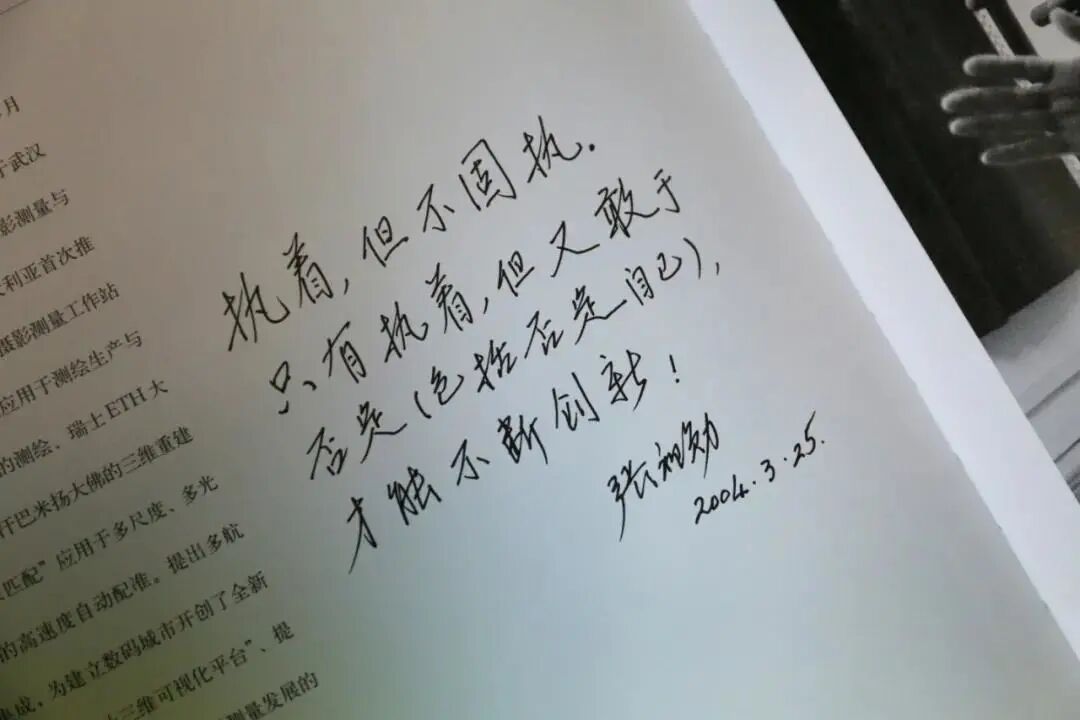 月
于武汉
影测量与
大利亚首次推
摄影测量工作站
应用于测绘生产与
的测绘、瑞士ETH大
汗巴米扬大佛的三维重建
匹配”应用于多尺度、多光
的高速度自动配准。提出多航
集成，为建立数码城市开创了全新
三维可视化平台”、提
测量发展的
执着，但不固执．
只有执着，但又敢于
否定(包括否定自己)，
才能不断创新！
张祖勋
2004.3.25.